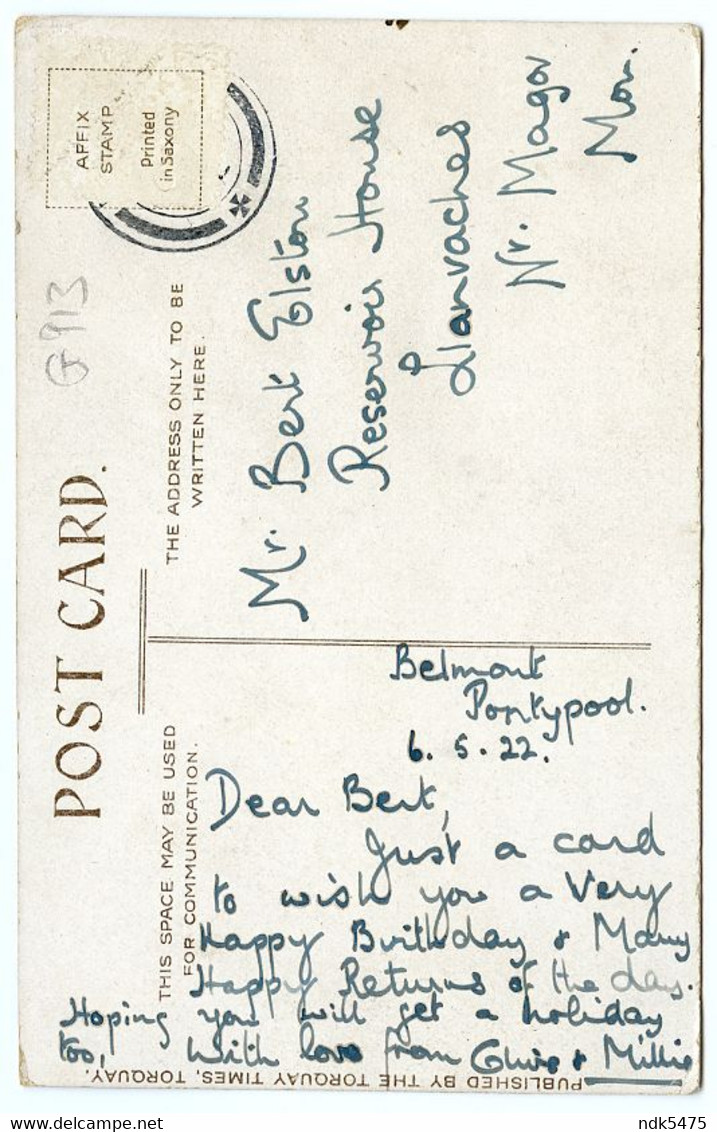 POST CARD.
AFFIX
STAMP
Printed
in Saxony
G913
THIS SPACE MAY BE USED
FOR COMMUNICATION.
THE ADDRESS ONLY TO BE
WRITTEN HERE.
Belmont
Pontypool.
6.5.22.
Dear Bert,
Just a card
to wish you a Very
Happy Birthday & Many
Happy Returns of the day.
Hoping you will get a holiday
too, With love from & Millie
Mr. Bert Elston
Reservoir House
Llanvaches
Nr. Magor
Mon.
PUBLISHED BY THE TORQUAY TIMES, TORQUAY.
ndk5475